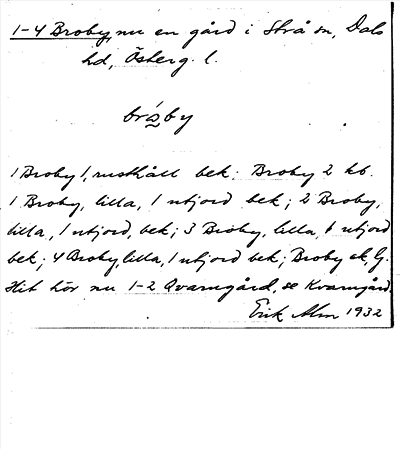 1-4 Broby, nu en gård i Strå sn, Dals
hd, Österg. l.
bró̱by
1 Broby 1, rusthåll bek; Broby 2 kb.
1 Broby, lilla, 1 utjord bek; 2 Broby,
lilla, 1 utjord, bek; 3 Broby, lilla, 1 utjord
bek; 4 Broby, lilla, 1 utjord bek; Broby ek, G.
Hit hör nu 1-2 Qvarngård, se Kvarngård.
Erik Alm 1932